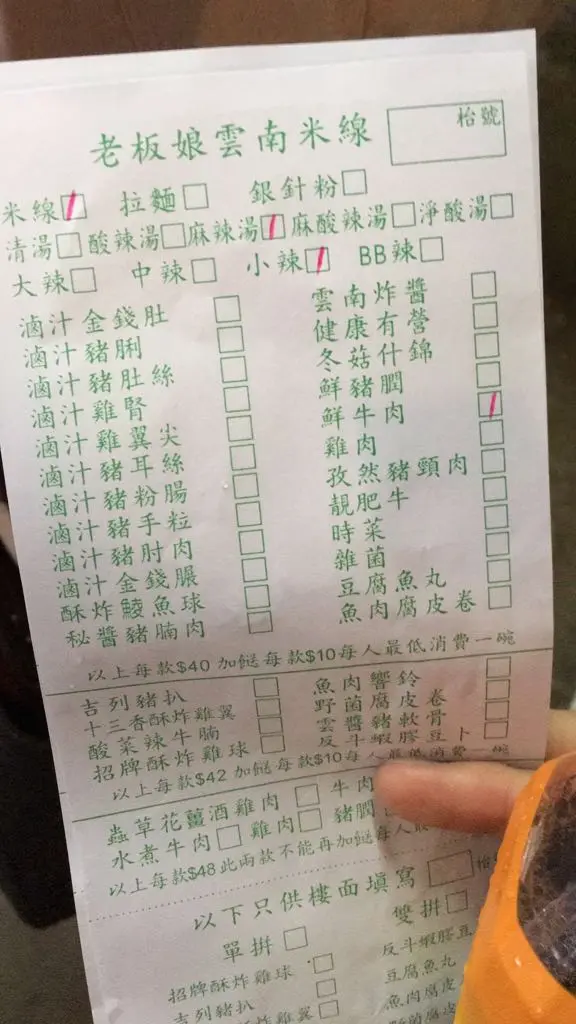 老板娘雲南米線
枱號
米線 拉麵 銀針粉
清湯 酸辣湯 麻辣湯 麻酸辣湯 淨酸湯
大辣 中辣 小辣 BB辣
滷汁金錢肚
滷汁豬脷
滷汁豬肚絲
滷汁雞腎
滷汁雞翼尖
滷汁豬耳絲
滷汁豬粉腸
滷汁豬手粒
滷汁豬肘肉
滷汁金錢𦟌
酥炸鯪魚球
秘醬豬腩肉
雲南炸醬
健康有營
冬菇什錦
鮮豬膶
鮮牛肉
雞肉
孜然豬頸肉
靚肥牛
時菜
雜菌
豆腐魚丸
魚肉腐皮卷
以上每款$40 加餸每款$10每人最低消費一碗
吉列豬扒
十三香酥炸雞翼
酸菜辣牛腩
招牌酥炸雞球
魚肉響鈴
野菌腐皮卷
雲醬豬軟骨
反斗蝦膠豆卜
以上每款$42 加餸每款$10每人最低消費一碗
蟲草花薑酒雞肉 牛肉
水煮牛肉 雞肉 豬膶
以上每款$48此兩款不能再加餸每人最
以下只供樓面填寫
枱
單拼 雙拼
招牌酥炸雞球
吉列豬扒
十三香酥炸雞翼
反斗蝦膠豆
豆腐魚丸
魚肉腐皮
野菌腐皮